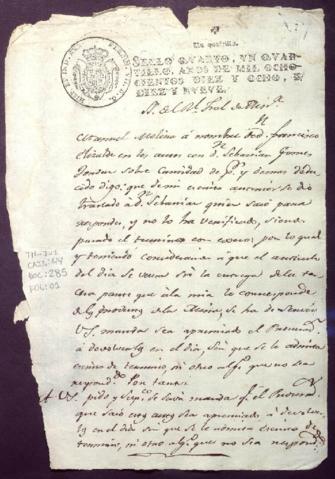 Un quartillo.
SELLO QUARTO, UN QUAR-
TILLO, AÑOS DE MIL OCHO-
CIENTOS DIEZ Y OCHO, Y
DIEZ Y NUEVE.
Manuel Molina à nombre de d. Francisco
Elizalde en los autos con dn. Sebastian Gomez
sobre Cantidad de ps. y demas dedu-
cido digo: que de mi escrito anterior se dió
traslado à dn. Sebastian quien sacó para
responder, y no lo ha verificado, siendo
pasado el termino con exceso, por lo qual
y teniendo consideracion à que el
del dia se versa sre la entrega de la ter-
cera parte que à la mia le corresponde
de los de la se ha de servir
VS. mandar sea apremiado el Procurad.
à devolverlos en el dia, sin que se le admita
escrito de termino, ni otro algo. que no sea
respond. Por tanto
A VS. pido y sup.co se sirva mandar q. el Procurad.
que sacó sea apremiado à devolver
los en el dia sin que se le admita escrito de
termino, ni otro algo. que no sea respond.
TH-JU1
CAJ:144
DOC:285
FOL:01